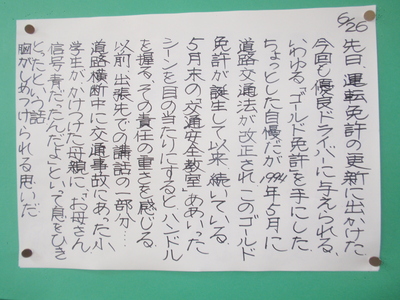 6/26
先日、運転免許の更新に出かけた
今回も優良ドライバーに与えられる、
いわゆる「ゴールド免許」を手にした
ちょっとした自慢だが1994年5月に
道路交通法が改正され、このゴールド
免許が誕生して以来、続いている。
5月末の「交通安全教室」ああいった
シーンを目の当たりにすると、ハンドル
を握る、その責任の重さを感じる
以前、出張先での講話の一部分…
道路横断中に交通事故であった小
学生が、かけつけた母親に「お母さん
信号、青だったんだよ」といって息をひき
とったという話
胸がしめつけられる思いだ